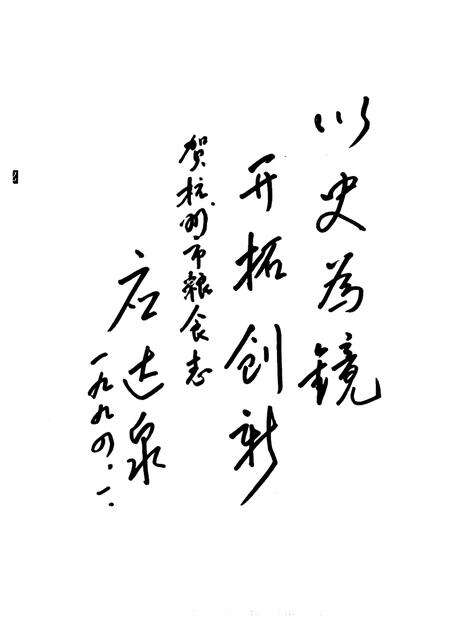 以史為鏡
开拓创新
贺杭州市粮食志
应达泉
一九九四.一.